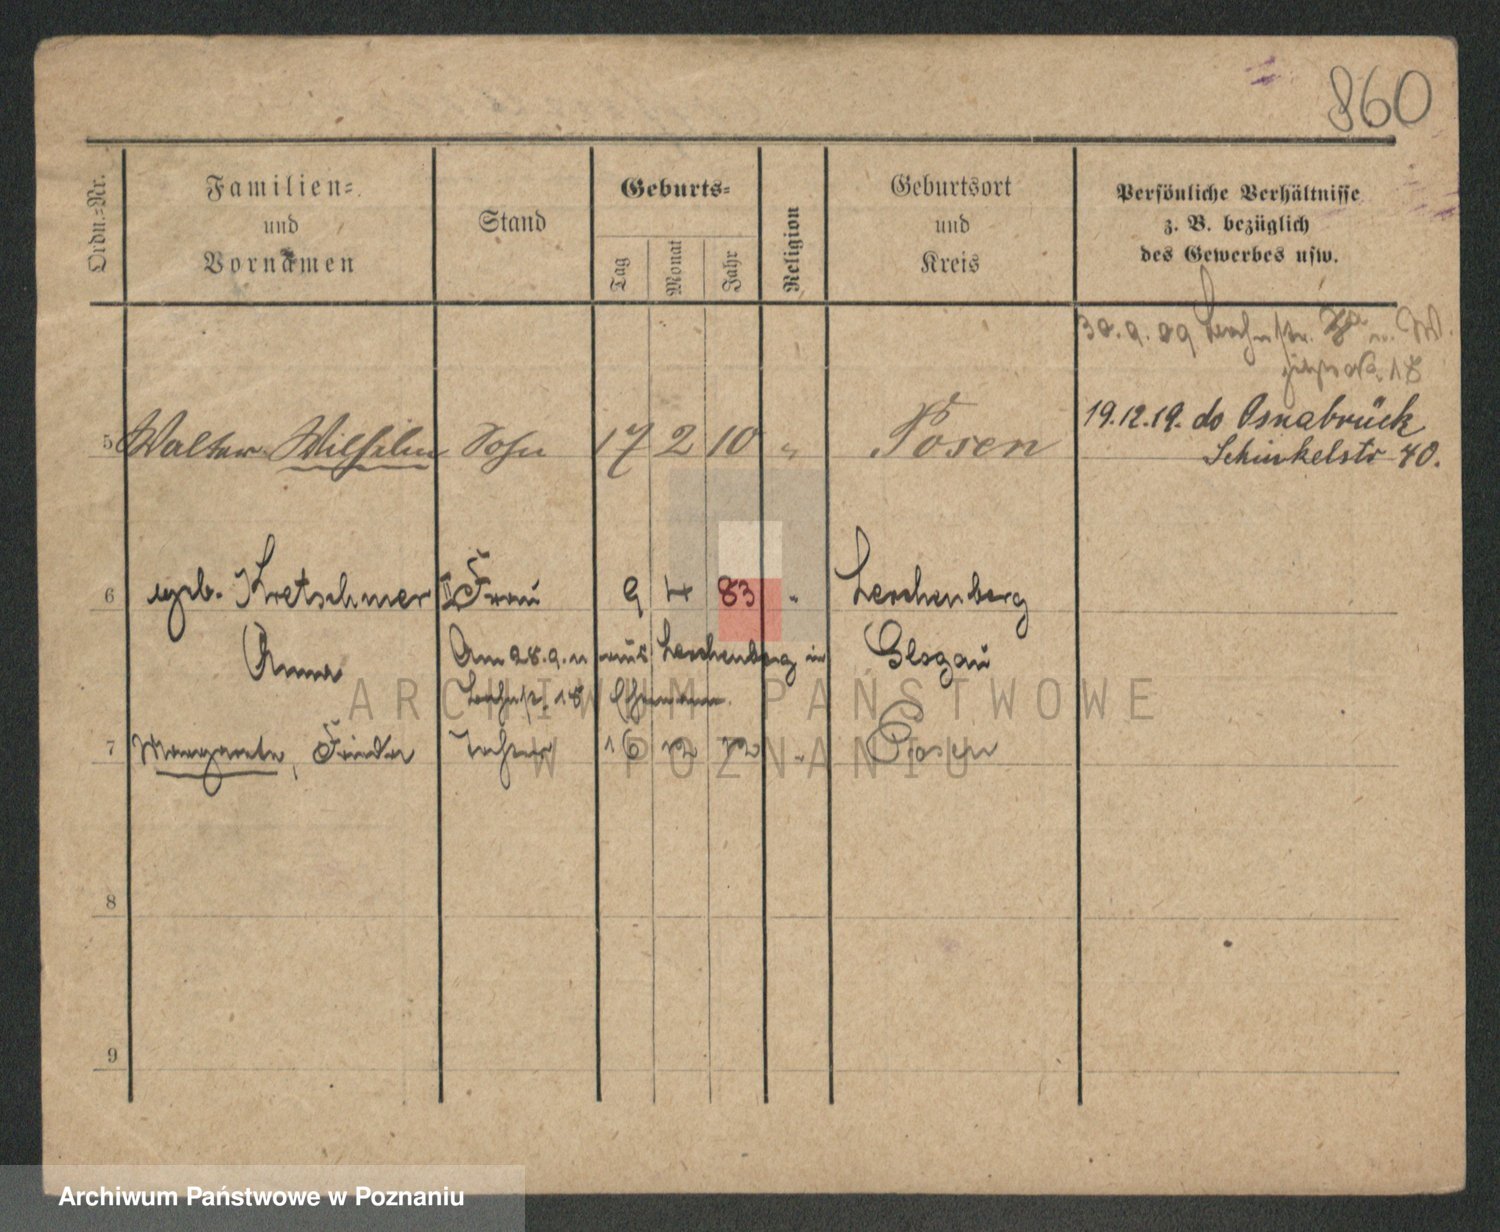 860
Ordn.=Nr.
Familien=
und
Vornamen
Stand
Geburts=
Tag
Monat
Jahr
Religion
Geburtsort
und
Kreis
Persönliche Verhältnisse
z. B. bezüglich
des Gewerbes usw.
30.9.09
18
19.12.19. do Osnabrück
Schinkelstr 40.
5 Walter Wilhelm Sohn 17 2 10 " Posen
6 geb. Kretschmer II Frau 9 4 83 " Lerchenberg
Anna Am 28.9.11 aus Lerchenberg in Glogau
18 Ehemann.
7 Margarete, Frieda Tochter 16 12 12 " Posen
8
9
ARCHIWUM PAŃSTWOWE
W POZNANIU
Archiwum Państwowe w Poznaniu